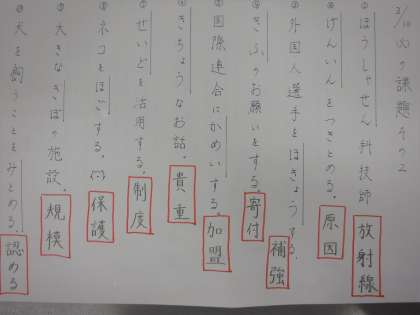 3/10(火)の課題 その2
①ほうしゃせん科技師 放射線
②げんいんをつきとめる。 原因
③外国人選手をほきょうする。 補強
④きふのお願いをする。 寄付
⑤国際連合にかめいする。 加盟
⑥きちょうなお話。 貴重
⑦せいどを活用する。 制度
⑧ネコをほごする。 保護
⑨大きなきぼの施設。 規模
⑩犬を飼うことをみとめる。 認める